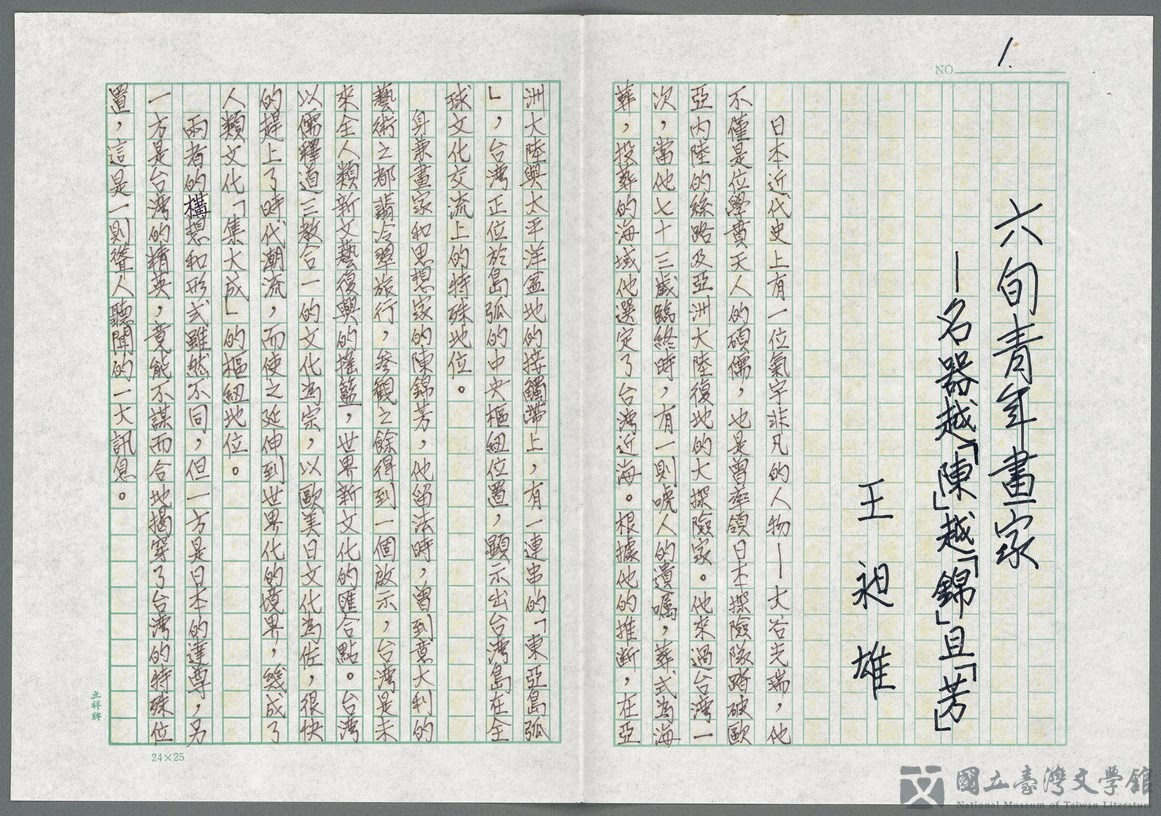 NO 1.
六旬青年畫家
—名器越「陳」越「錦」且「芳」
王昶雄
日本近代史上有一位氣宇非凡的人物——大谷光瑞，他
不僅是位學貫天人的碩儒，也是曾率領日本探險隊踏破歐
亞內陸的絲路及亞洲大陸復地的大探險家。他來過台灣一
次，當他七十三歲臨終時，有一則唬人的遺囑，葬式為海
葬，投葬的海域他選定了台灣近海。根據他的推斷，在亞
洲大陸與太平洋盆地的接觸帶上，有一連串的「東亞島弧
」，台灣正位於島弧的中央樞紐位置，顯示出台灣島在全
球文化交流上的特殊地位。
身兼畫家和思想家的陳錦芳，他留法時，曾到意大利的
藝術之都翡冷翠旅行，參觀之餘得到一個啟示，台灣是未
來全人類新文藝復興的搖籃，世界新文化的匯合點。台灣
以儒釋道三教合一的文化為宗，以歐美日文化為佐，很快
的趕上了時代潮流，而使之延伸到世界化的境界，幾成了
人類文化「集大成」的樞紐地位。
兩者的構想和形式雖然不同，但一方是日本的達尊，另
一方是台灣的精英，竟能不謀而合地揭穿了台灣的特殊位
置，這是一則聳人聽聞的一大訊息。
立祥牌
24×25
國立臺灣文學館
National Museum of Taiwan Literature